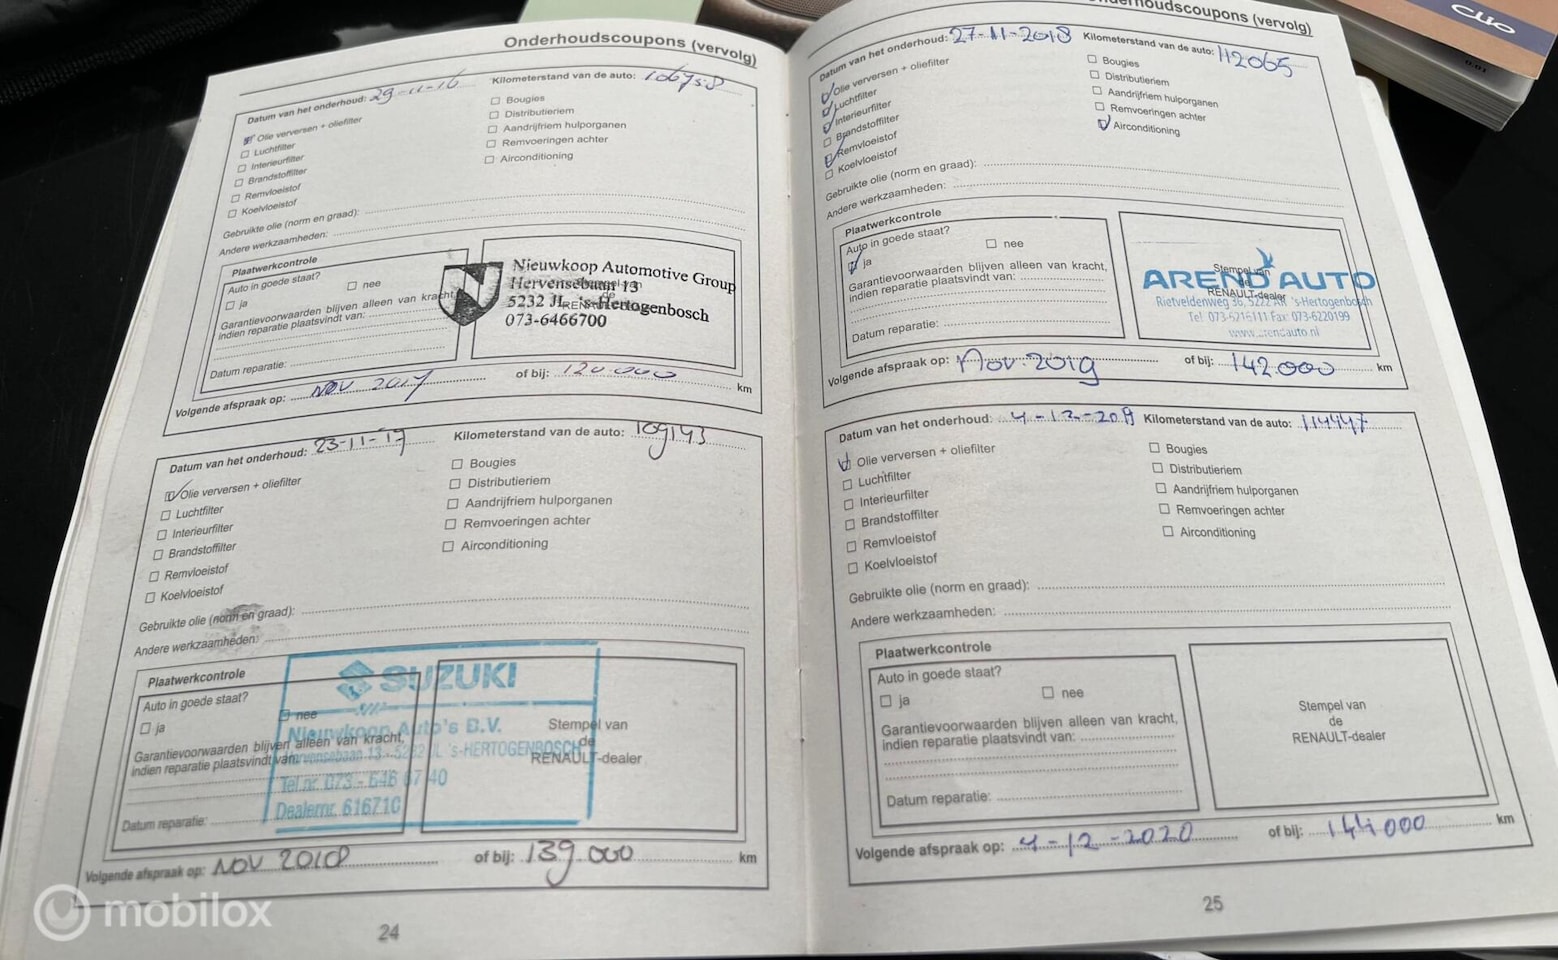 Onderhoudscoupons (vervolg)
Datum van het onderhoud: 29-11-16 Kilometerstand van de auto:
Olie verversen + oliefilter
Luchtfilter
Interieurfilter
Brandstoffilter
Remvloeistof
Koelvloeistof
Bougies
Distributieriem
Aandrijfriem hulporganen
Remvoeringen achter
Airconditioning
Gebruikte olie (norm en graad):
Andere werkzaamheden:
Plaatwerkcontrole
Auto in goede staat?
ja
nee
Garantievoorwaarden blijven alleen van kracht,
indien reparatie plaatsvindt van:
Datum reparatie:
Nieuwkoop Automotive Group
Hervensebaan 13
5232 JL 's-Hertogenbosch
073-6466700
Volgende afspraak op: NOV 2017 of bij: 120.000 km
Datum van het onderhoud: 23-11-'17 Kilometerstand van de auto: 109143
Olie verversen + oliefilter
Luchtfilter
Interieurfilter
Brandstoffilter
Remvloeistof
Koelvloeistof
Bougies
Distributieriem
Aandrijfriem hulporganen
Remvoeringen achter
Airconditioning
Gebruikte olie (norm en graad):
Andere werkzaamheden:
Plaatwerkcontrole
Auto in goede staat?
ja
nee
Garantievoorwaarden blijven alleen van kracht,
indien reparatie plaatsvindt van:
Datum reparatie:
SUZUKI
Nieuwkoop Auto's B.V.
Hervensebaan 13 - 5232 JL 's-HERTOGENBOSCH
Tel.nr. 073 - 646 67 40
Dealernr. 616710
Stempel van
de
RENAULT-dealer
Volgende afspraak op: NOV 2018 of bij: 139.000 km
24
mobilox
Onderhoudscoupons (vervolg)
Datum van het onderhoud: 27-11-2018 Kilometerstand van de auto: 112065
Olie verversen + oliefilter
Luchtfilter
Interieurfilter
Brandstoffilter
Remvloeistof
Koelvloeistof
Bougies
Distributieriem
Aandrijfriem hulporganen
Remvoeringen achter
Airconditioning
Gebruikte olie (norm en graad):
Andere werkzaamheden:
Plaatwerkcontrole
Auto in goede staat?
ja
nee
Garantievoorwaarden blijven alleen van kracht,
indien reparatie plaatsvindt van:
Datum reparatie:
Stempel van
de
RENAULT-dealer
AREND AUTO
Rietveldenweg 36, 5222 AR 's-Hertogenbosch
Tel. 073-6216111 Fax: 073-6220199
www.arendauto.nl
Volgende afspraak op: Nov. 2019 of bij: 142.000 km
Datum van het onderhoud: 4-12-2019 Kilometerstand van de auto: 114447
Olie verversen + oliefilter
Luchtfilter
Interieurfilter
Brandstoffilter
Remvloeistof
Koelvloeistof
Bougies
Distributieriem
Aandrijfriem hulporganen
Remvoeringen achter
Airconditioning
Gebruikte olie (norm en graad):
Andere werkzaamheden:
Plaatwerkcontrole
Auto in goede staat?
ja
nee
Garantievoorwaarden blijven alleen van kracht,
indien reparatie plaatsvindt van:
Datum reparatie:
Stempel van
de
RENAULT-dealer
Volgende afspraak op: 4-12-2020 of bij: 144000 km
25
CLIO